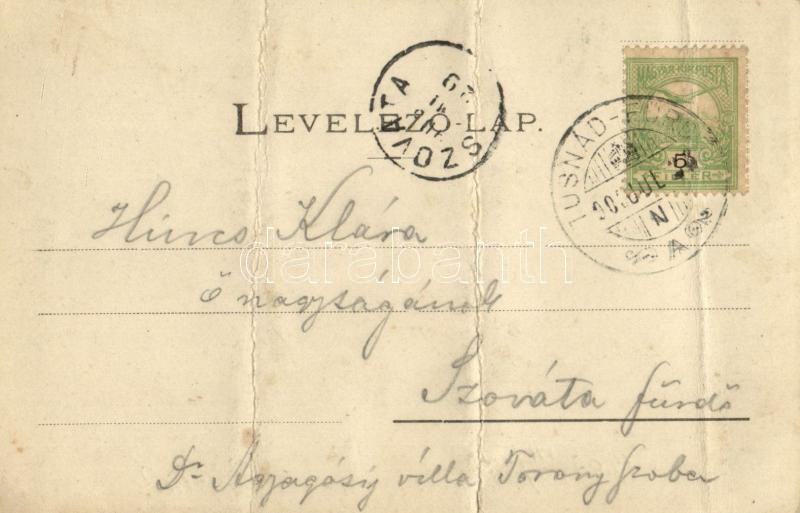 LEVELEZŐ-LAP.
SZOVÁTA
MAGYAR KIR. POSTA
5
FILLÉR
TUSNÁD-FÜRDŐ
N
Hincs Klára
Ő nagyságának
Szováta fürdő
Dr Agyagósy villa Torony szoba
darabanth